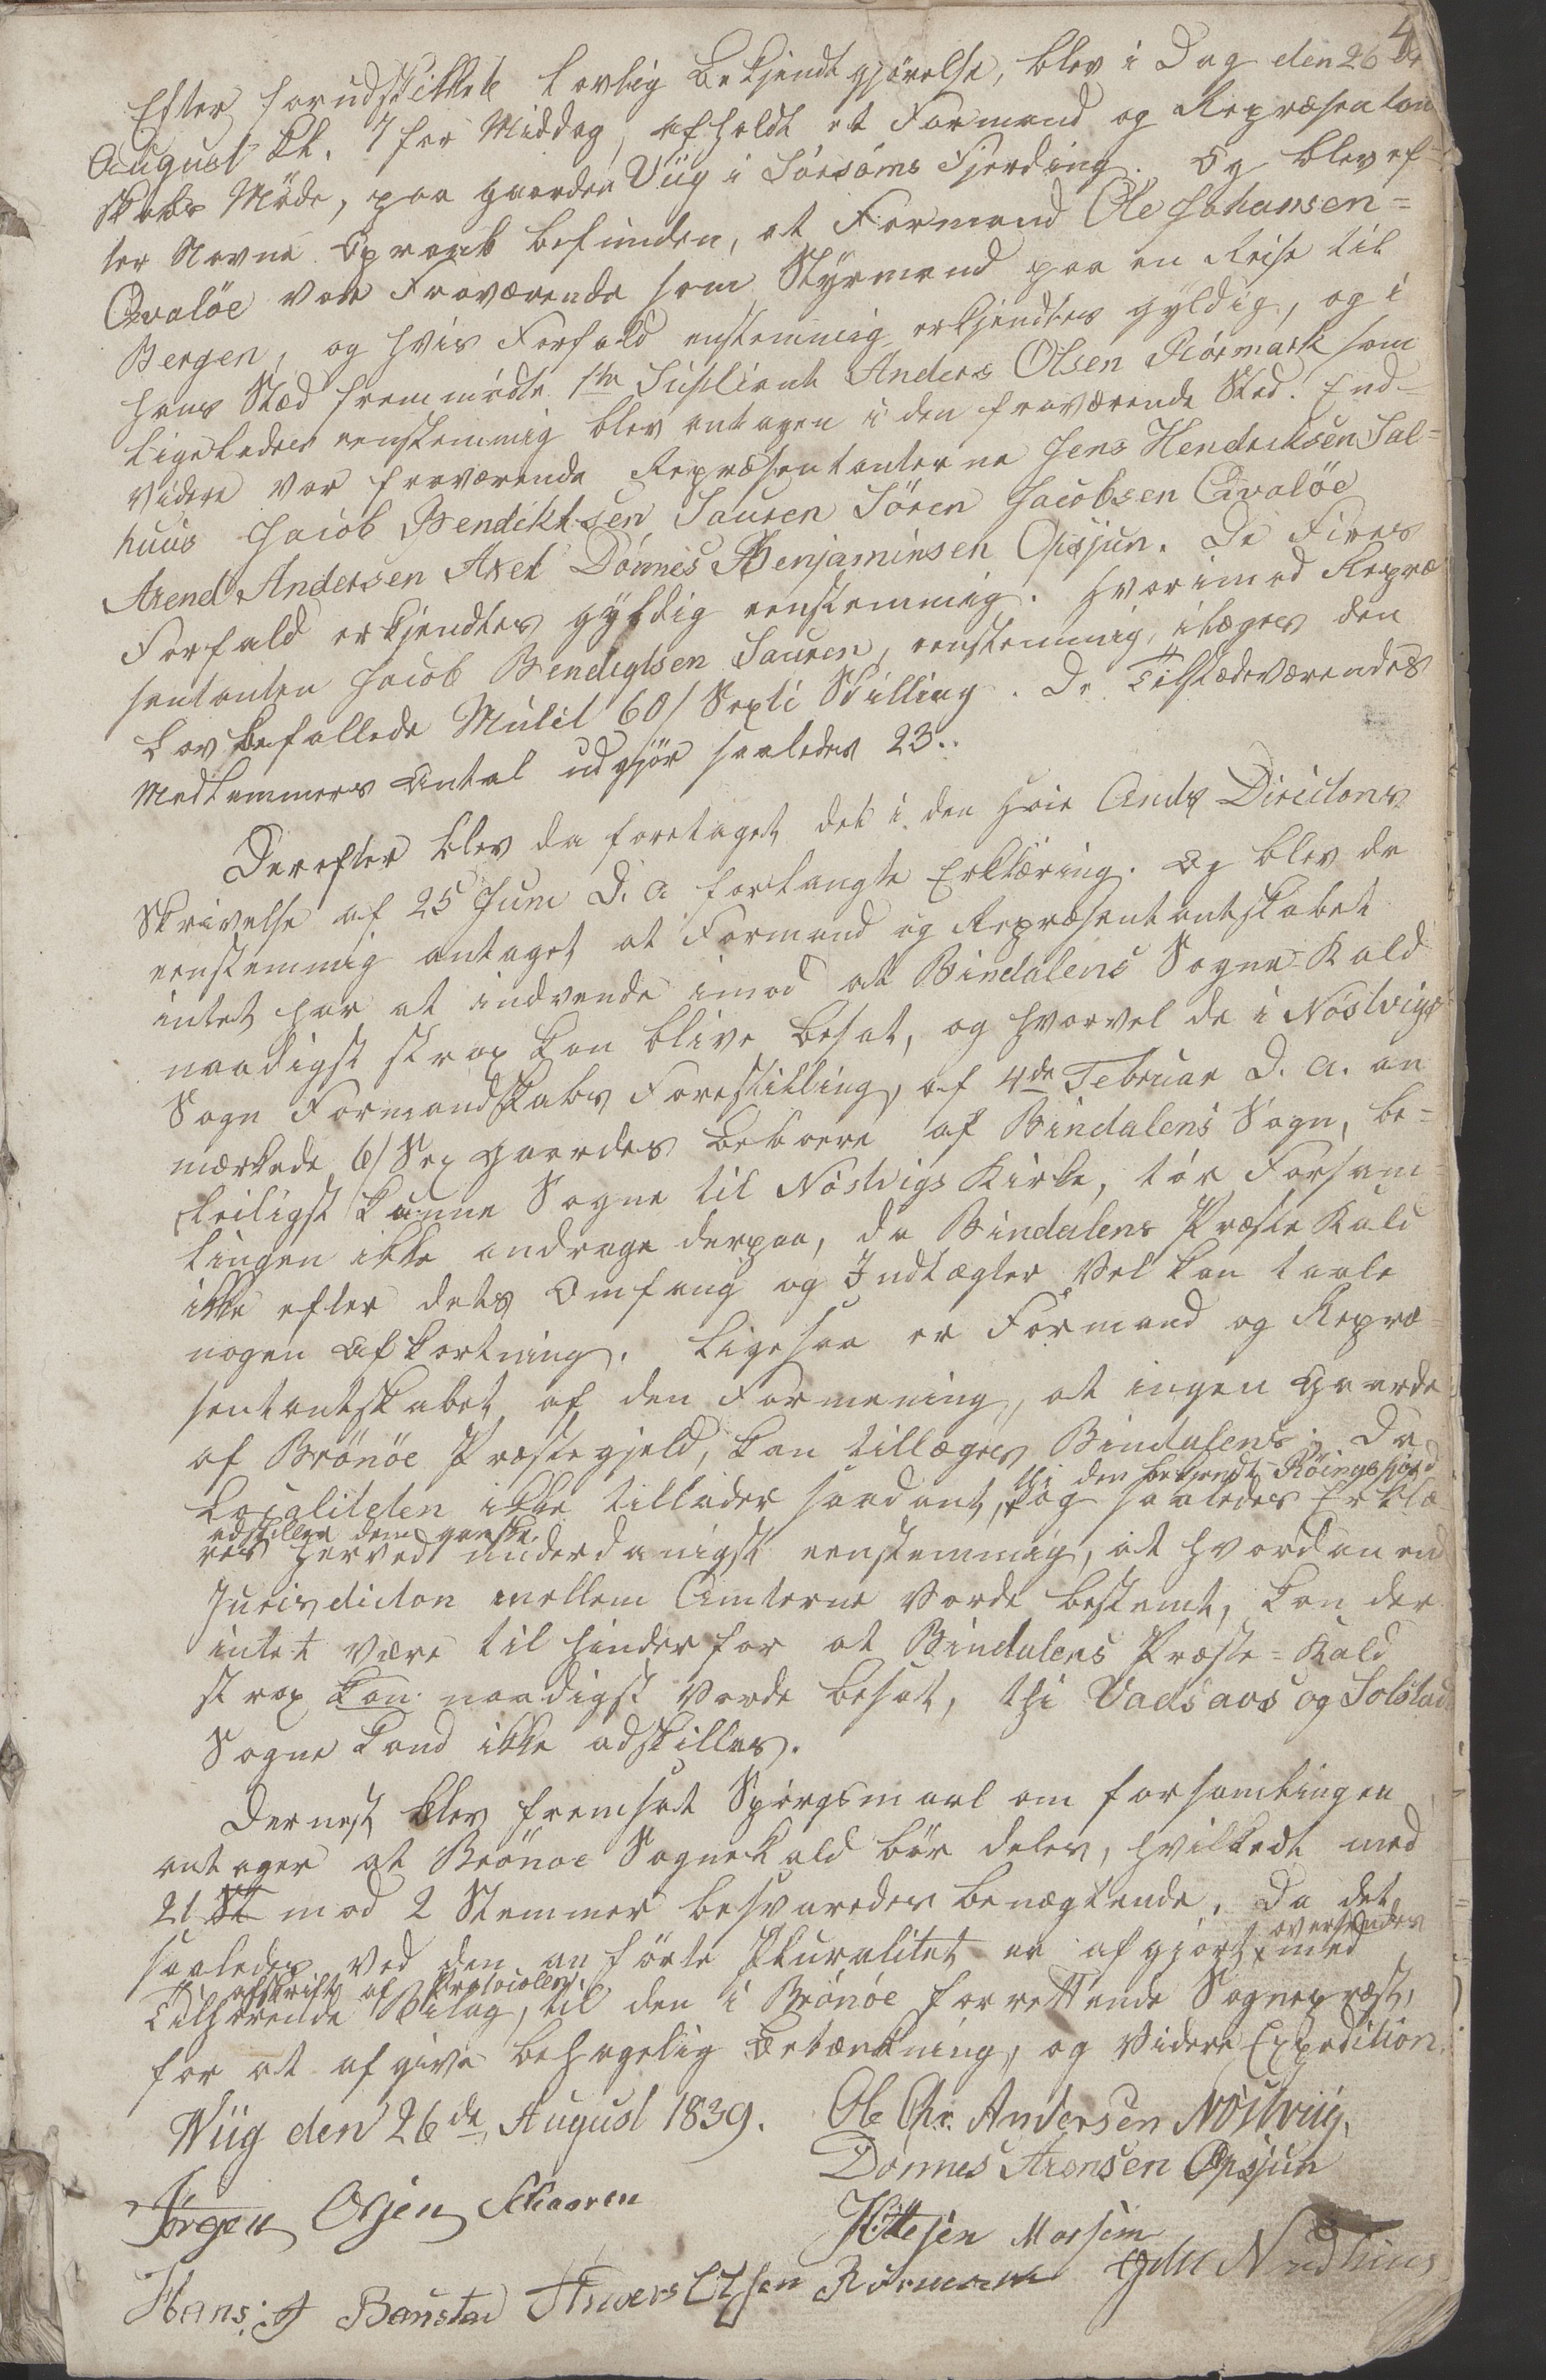 4
Efter forudskikket lovlig Bekjendtgjörelse, blev i Dag den 26de
August Kl. 7 for Middag, afholdt et Formand og Repræsentan
skabs Möde, paa gaarden Viig i Sörsöms Fjerding. Og blev ef=
ter Navne Opraab befunden, at Formand Ole Johansen=
Qvalöe var Fraværende som Styrmand paa en Reise til
Bergen, og hvis Forfald enstemmig erkjendtes gyldig, og i
hans Stæd fremmödte 1ste Suplient Anders Olsen Rörmark som
ligeledes eenstemmig blev antagen i den fraværende Sted. End-
videre var fraværende Repræsentanterne Jens Hendriksen Sal=
huus Jacob Bendiktsen Sausen Sören Jacobsen Qvalöe
Arend Andersen Axel Dönnes Benjaminsen Opsjun. De Fires
Forfald erkjendtes gyldig eenstemmig. Hvorimod Repræ
sentanten Jacob Bendigtsen Sausen, eenstemmig, ilægges den
Lov befallede Mulct 60/ Sexti Skilling. De Tilstædeværendes
Medlemmers Antal udgjör saaledes 23..
Derefter blev da foretaget det i den Höie Amds Directons
Skrivelse af 25 Juni D. A forlangte Erklæring. Og blev da
eenstemmig antaget at Formand og Repræsentantskabet
intet har at indvende imod at Bindalens Sogne-Kald
naadigst strax kan blive besat, og hvorvel de i Nöstvigs
Sogn Formandskabs Forestilling, af 4de Februar D. A. an
mærkede 6/ Sex Gaardes Beboere af Bindalens Sogn, be=
leiligst kunne Sogne til Nöstvigs Kirke, tör Forsam=
lingen ikke andrage derpaa, da Bindalens Præste Kald
ikke efter dets Omfang og Indtægter vel kan taale
nogen Afkortning. Ligesaa er Formand og Repræ=
sentantskabet af den Formening, at ingen Gaarde
af Brönöe Præstegjeld, kan tillægges Bindalens; Da
thi den bekjendt Röings fjord
Localiteten ikke tillader saadant, og saaledes Erklæ
adskiller dem ganske
res herved underdanigst eenstemmig, at hvordan end
Jurisdicton mellem Amterne vorde bestemt, kan der
intet være til hinder for at Bindalens Præste=Kald
strax kan naadigst vorde besat, thi Vadsaas og Solstad
Sogne kand ikke adskilles.
Dernest blev fremsat Spörgsmaal om forsamlingen
antager at Brönöe Sognekald bör deles, hvilkedt med
21 St mod 2 Stemmer besvaredes benægtende. Da det
oversendes
saaledes ved den anförte Pluralitet er afgjort, med
afskrift af Protocolen,
Tilhörende Bilag, til den i Brönöe forrettende Sognepræst,
for at afgive behagelig Betænkning, og videre Expedition.
Wiig den 26de August 1839. Ole Chr. Andersen Nöstviig,
Dönnes Arensen Opsjun
Jörgen Olsen Skaaren
Hans: J Bangstad Anders Olsen Rörmark